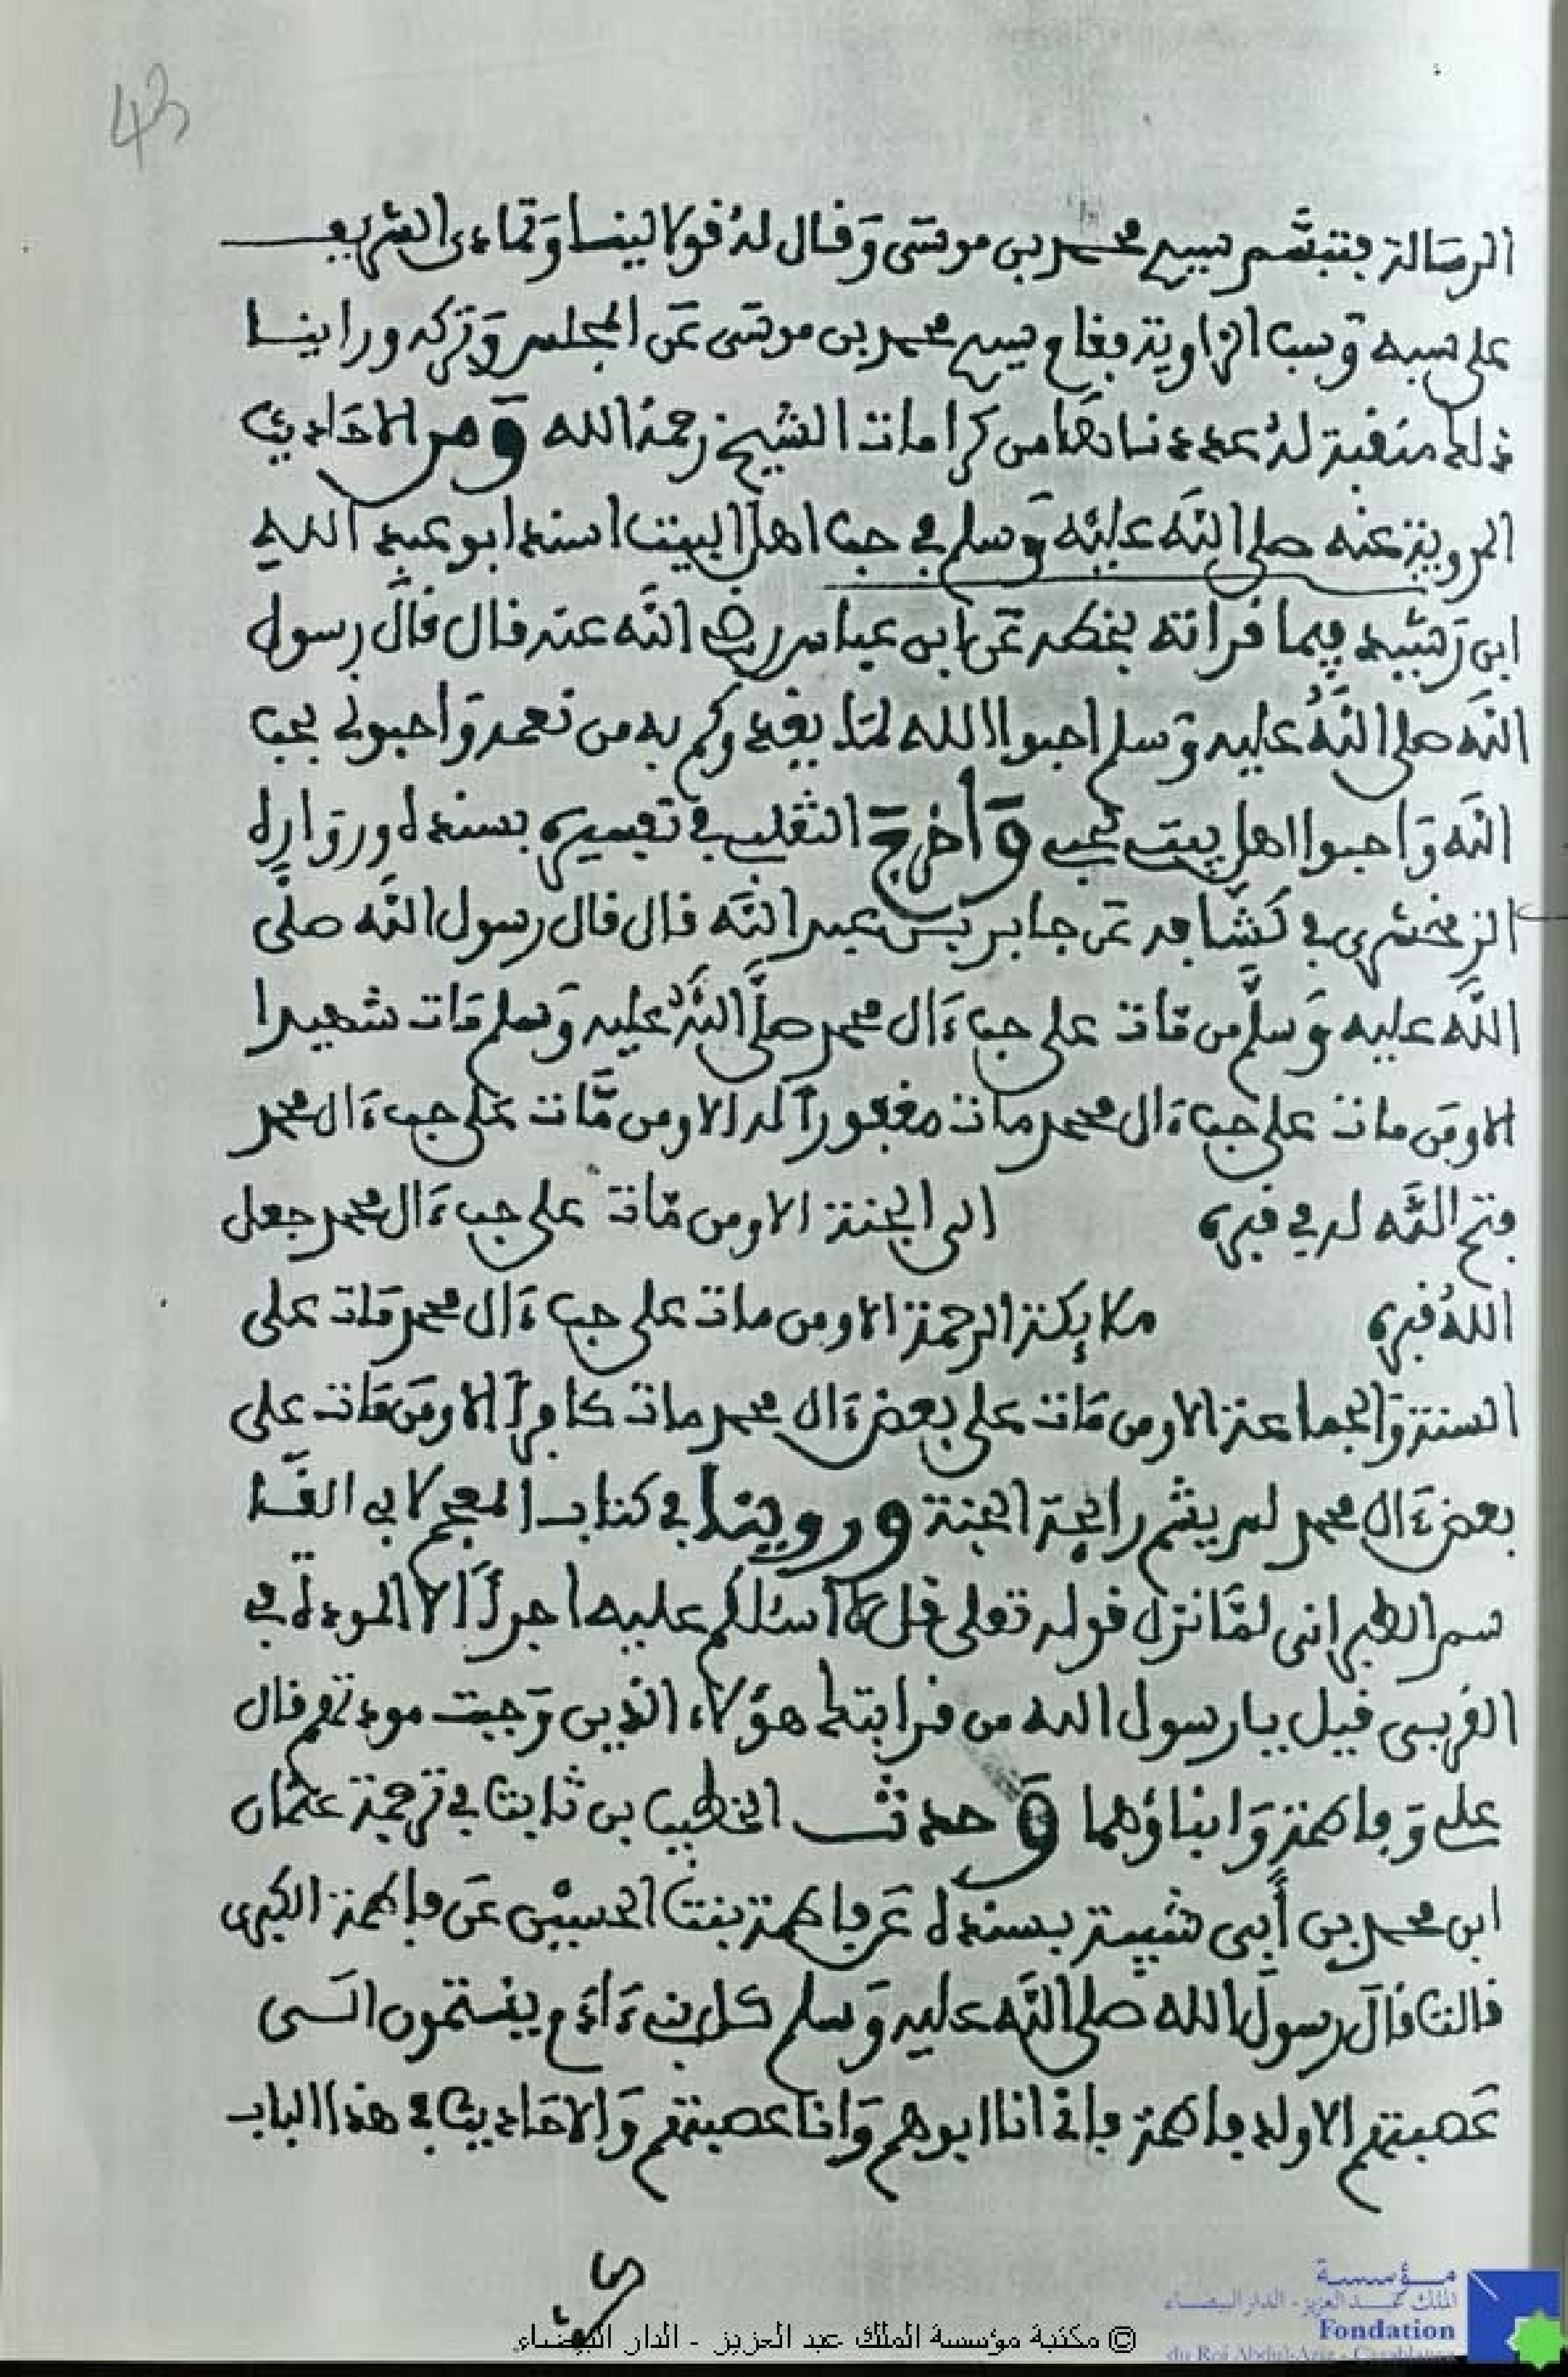 43
الرسالة فتبسم سيدي محمد بن موسى وقال له قولا لينا وتمادى الشريف
على سبه وسب الزاوية فقام سيدي محمد بن موسى عن المجلس وتركه وراينا
ذلك منقبة له عددناها من كرامات الشيخ رحمه الله ومن الاحاديث
المروية عنه صلى الله عليه وسلم في حب اهل البيت اسند ابو عبد الله
ابن رشيد فيما قراته بخطه عن ابن عباس رضي الله عنه قال قال رسول
الله صلى الله عليه وسلم احبوا الله لما يغدوكم به من نعمه واحبوني بحب
الله واحبوا اهل بيتي بحبي وأخرج الثعلبي في تفسيره بسنده
الزمخشري في كشافه عن جابر بن عبد الله قال قال رسول الله صلى
الله عليه وسلم من مات على حب ءال محمد صلى الله عليه وسلم مات شهيدا
الا ومن مات على حب ءال محمد مات مغفورا له الا ومن مات على حب ءال محمد
فتح الله له في قبره الى الجنة الا ومن مات على حب ءال محمد جعل
الله قبره ملايكة الرحمة الا ومن مات على حب ءال محمد مات على
السنة والجماعة الا ومن مات على بعض ءال محمد مات كافرا الا ومن مات على
بعض ءال محمد لم يشم رايحة الجنة وروينا في كتاب المعجم لابي القا
سم الطبراني لما نزل قوله تعلى قل لا أسئلكم عليه اجرا الا المودة في
القربى قيل يا رسول الله من قرابتك هؤلاء الذين وجبت مودتهم قال
علي وفاطمة وابناؤهما وحدث الخطيب بن ثابت في ترجمة عثمان
ابن محمد بن أبي شيبة بسنده عن فاطمة بنت الحسين عن فاطمة الكبرى
قالت قال رسول الله صلى الله عليه وسلم كل بني ءادم ينتمون الى
عصبتهم الا ولد فاطمة فاني انا ابوهم وانا عصبتهم والاحاديث في هذا الباب
© مكتبة مؤسسة الملك عبد العزيز - الدار البيضاء
مؤسسة
الملك عبد العزيز - الدار البيضاء
Fondation
du Roi Abdul-Aziz - Casablanca